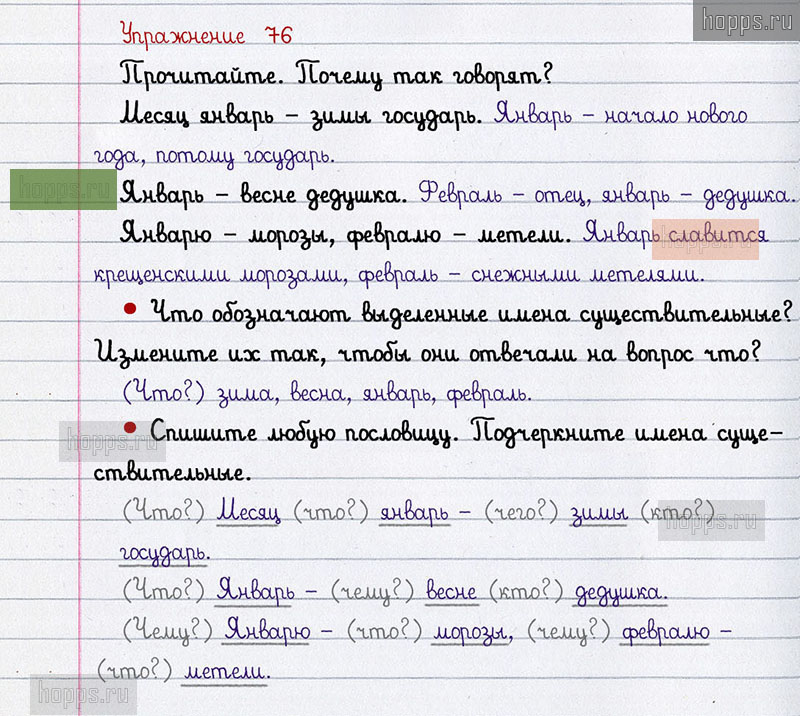 hopps.ru
Упражнение 76
Прочитайте. Почему так говорят?
Месяц январь – зимы государь. Январь – начало нового
года, потому государь.
hopps.ru
Январь – весне дедушка. Февраль – отец, январь – дедушка.
Январю – морозы, февралю – метели. Январь славится
hopps.ru
крещенскими морозами, февраль – снежными метелями.
• Что обозначают выделенные имена существительные?
Измените их так, чтобы они отвечали на вопрос что?
(Что?) зима, весна, январь, февраль.
• Спишите любую пословицу. Подчеркните имена суще-
hopps.ru
ствительные.
(Что?) Месяц (что?) январь – (чего?) зимы (кто?)
hopps.ru
государь.
(Что?) Январь – (чему?) весне (кто?) дедушка.
(Чему?) Январю – (что?) морозы, (чему?) февралю –
(что?) метели.
hopps.ru